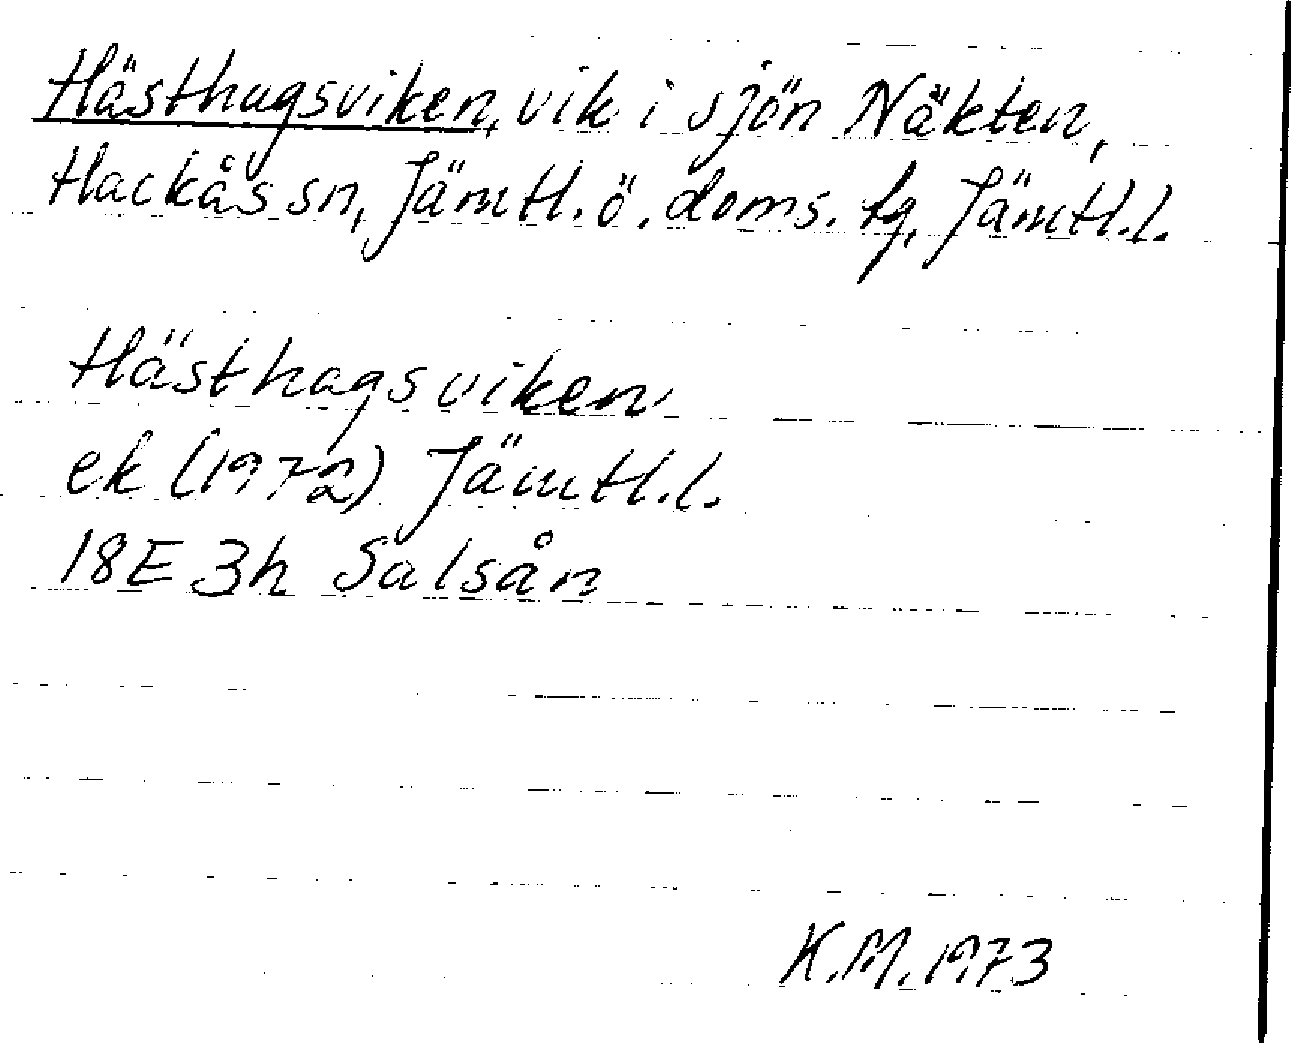 Hästhagsviken, vik i sjön Näkten,
Hackås sn, Jämtl. ö. doms. tg, Jämtl.l.
Hästhagsviken
ek (1972) Jämtl.l.
18E 3h Salsån
K.M. 1973